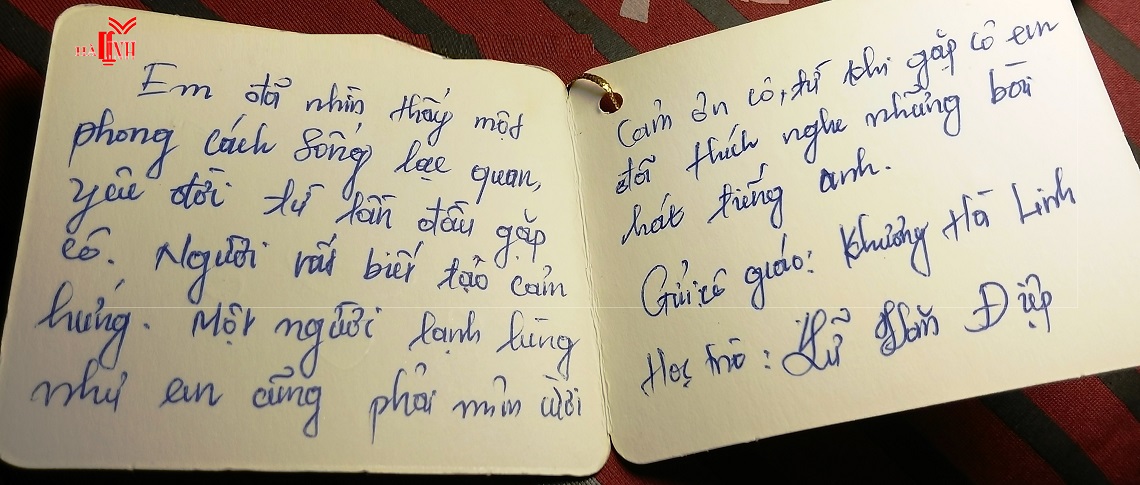 HÀ LINH
Em đã nhìn thấy một
phong cách sống lạc quan,
yêu đời từ lần đầu gặp
cô. Người rất biết tạo cảm
hứng. Một người lạnh lùng
như em cũng phải mỉm cười
Cảm ơn cô, từ khi gặp cô em
đã thích nghe những bài
hát tiếng anh.
Gửi cô giáo: Khương Hà Linh
Học trò: Diệp